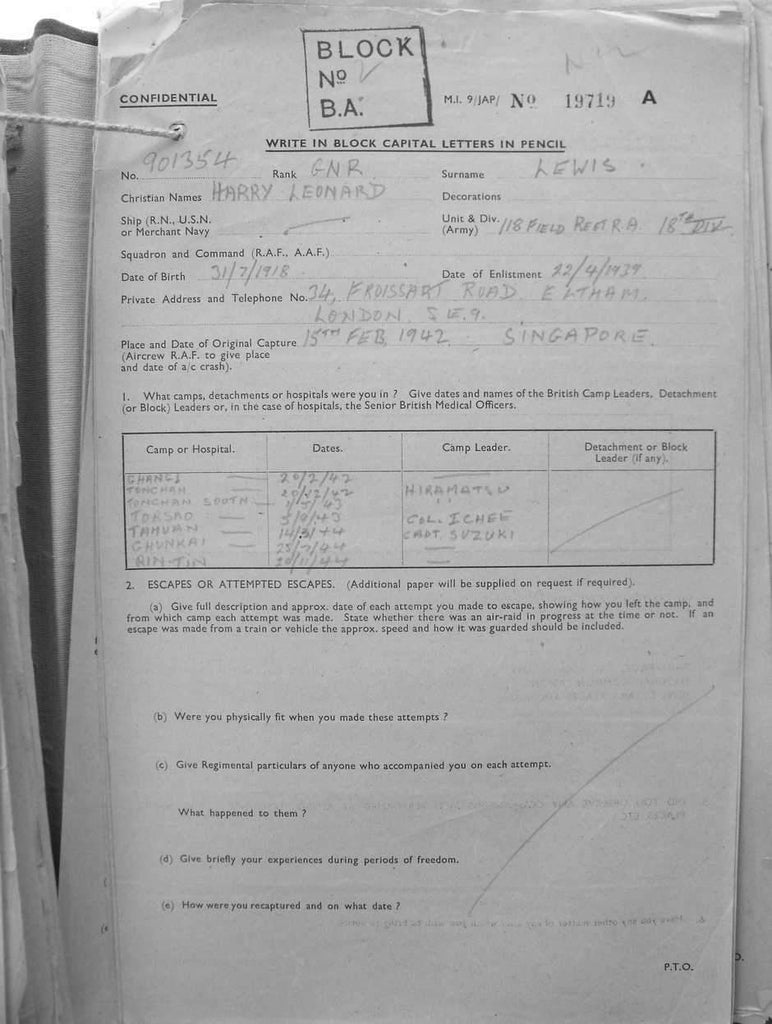 BLOCK
Nº
B.A.
CONFIDENTIAL
M.I. 9/JAP/ Nº 19719 A
WRITE IN BLOCK CAPITAL LETTERS IN PENCIL
No. 901354 Rank GNR Surname LEWIS
Christian Names HARRY LEONARD Decorations
Ship (R.N., U.S.N. or Merchant Navy
Unit & Div. (Army) 118 FIELD REGT R.A. 18TH DIV.
Squadron and Command (R.A.F., A.A.F.)
Date of Birth 31/7/1918 Date of Enlistment 22/4/1939
Private Address and Telephone No. 34, FROISSART ROAD ELTHAM.
LONDON. S.E.9.
Place and Date of Original Capture 15TH FEB, 1942. SINGAPORE.
(Aircrew R.A.F. to give place
and date of a/c crash).
1. What camps, detachments or hospitals were you in ? Give dates and names of the British Camp Leaders, Detachment
(or Block) Leaders or, in the case of hospitals, the Senior British Medical Officers.
Camp or Hospital. Dates. Camp Leader. Detachment or Block Leader (if any).
CHANGI 20/2/42
TONCHAN HIRAMATSU
TONCHAN SOUTH " "
TORSAO 5/9/43 COL. ICHEE
TAMUAN 14/3/44 CAPT. SUZUKI
CHUNKAI 25/7/44
RIN-TIN 20/11/44
2. ESCAPES OR ATTEMPTED ESCAPES. (Additional paper will be supplied on request if required).
(a) Give full description and approx. date of each attempt you made to escape, showing how you left the camp, and
from which camp each attempt was made. State whether there was an air-raid in progress at the time or not. If an
escape was made from a train or vehicle the approx. speed and how it was guarded should be included.
(b) Were you physically fit when you made these attempts ?
(c) Give Regimental particulars of anyone who accompanied you on each attempt.
What happened to them ?
(d) Give briefly your experiences during periods of freedom.
(e) How were you recaptured and on what date ?
P.T.O.